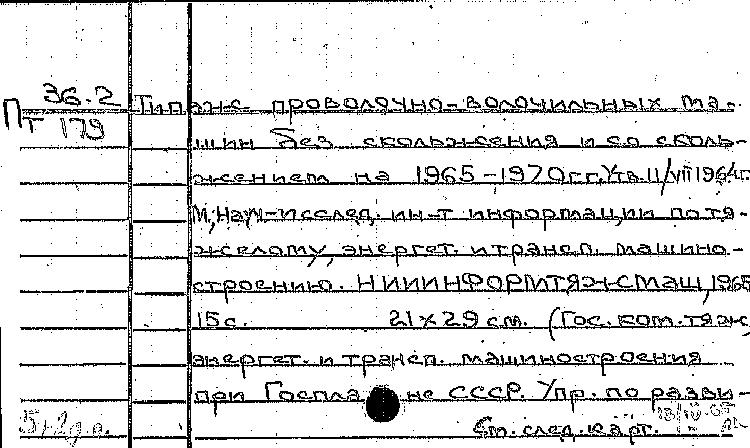 36.2 Типаж проволочно-волочильных ма-
Пт 179
шин без скольжения и со сколь-
жением на 1965-1970гг. Утв. 11/VII 1964г.
М, Науч-исслед. ин-т информации по тя-
желому, энергет. и трансп. машино-
строению. НИИИНФОРМТЯЖМАШ, 1965
15с. 21×29см. (Гос. ком. тяж,
энергет. и трансп. машиностроения
при Госплане СССР. Упр. по разви-
См. след. карт.